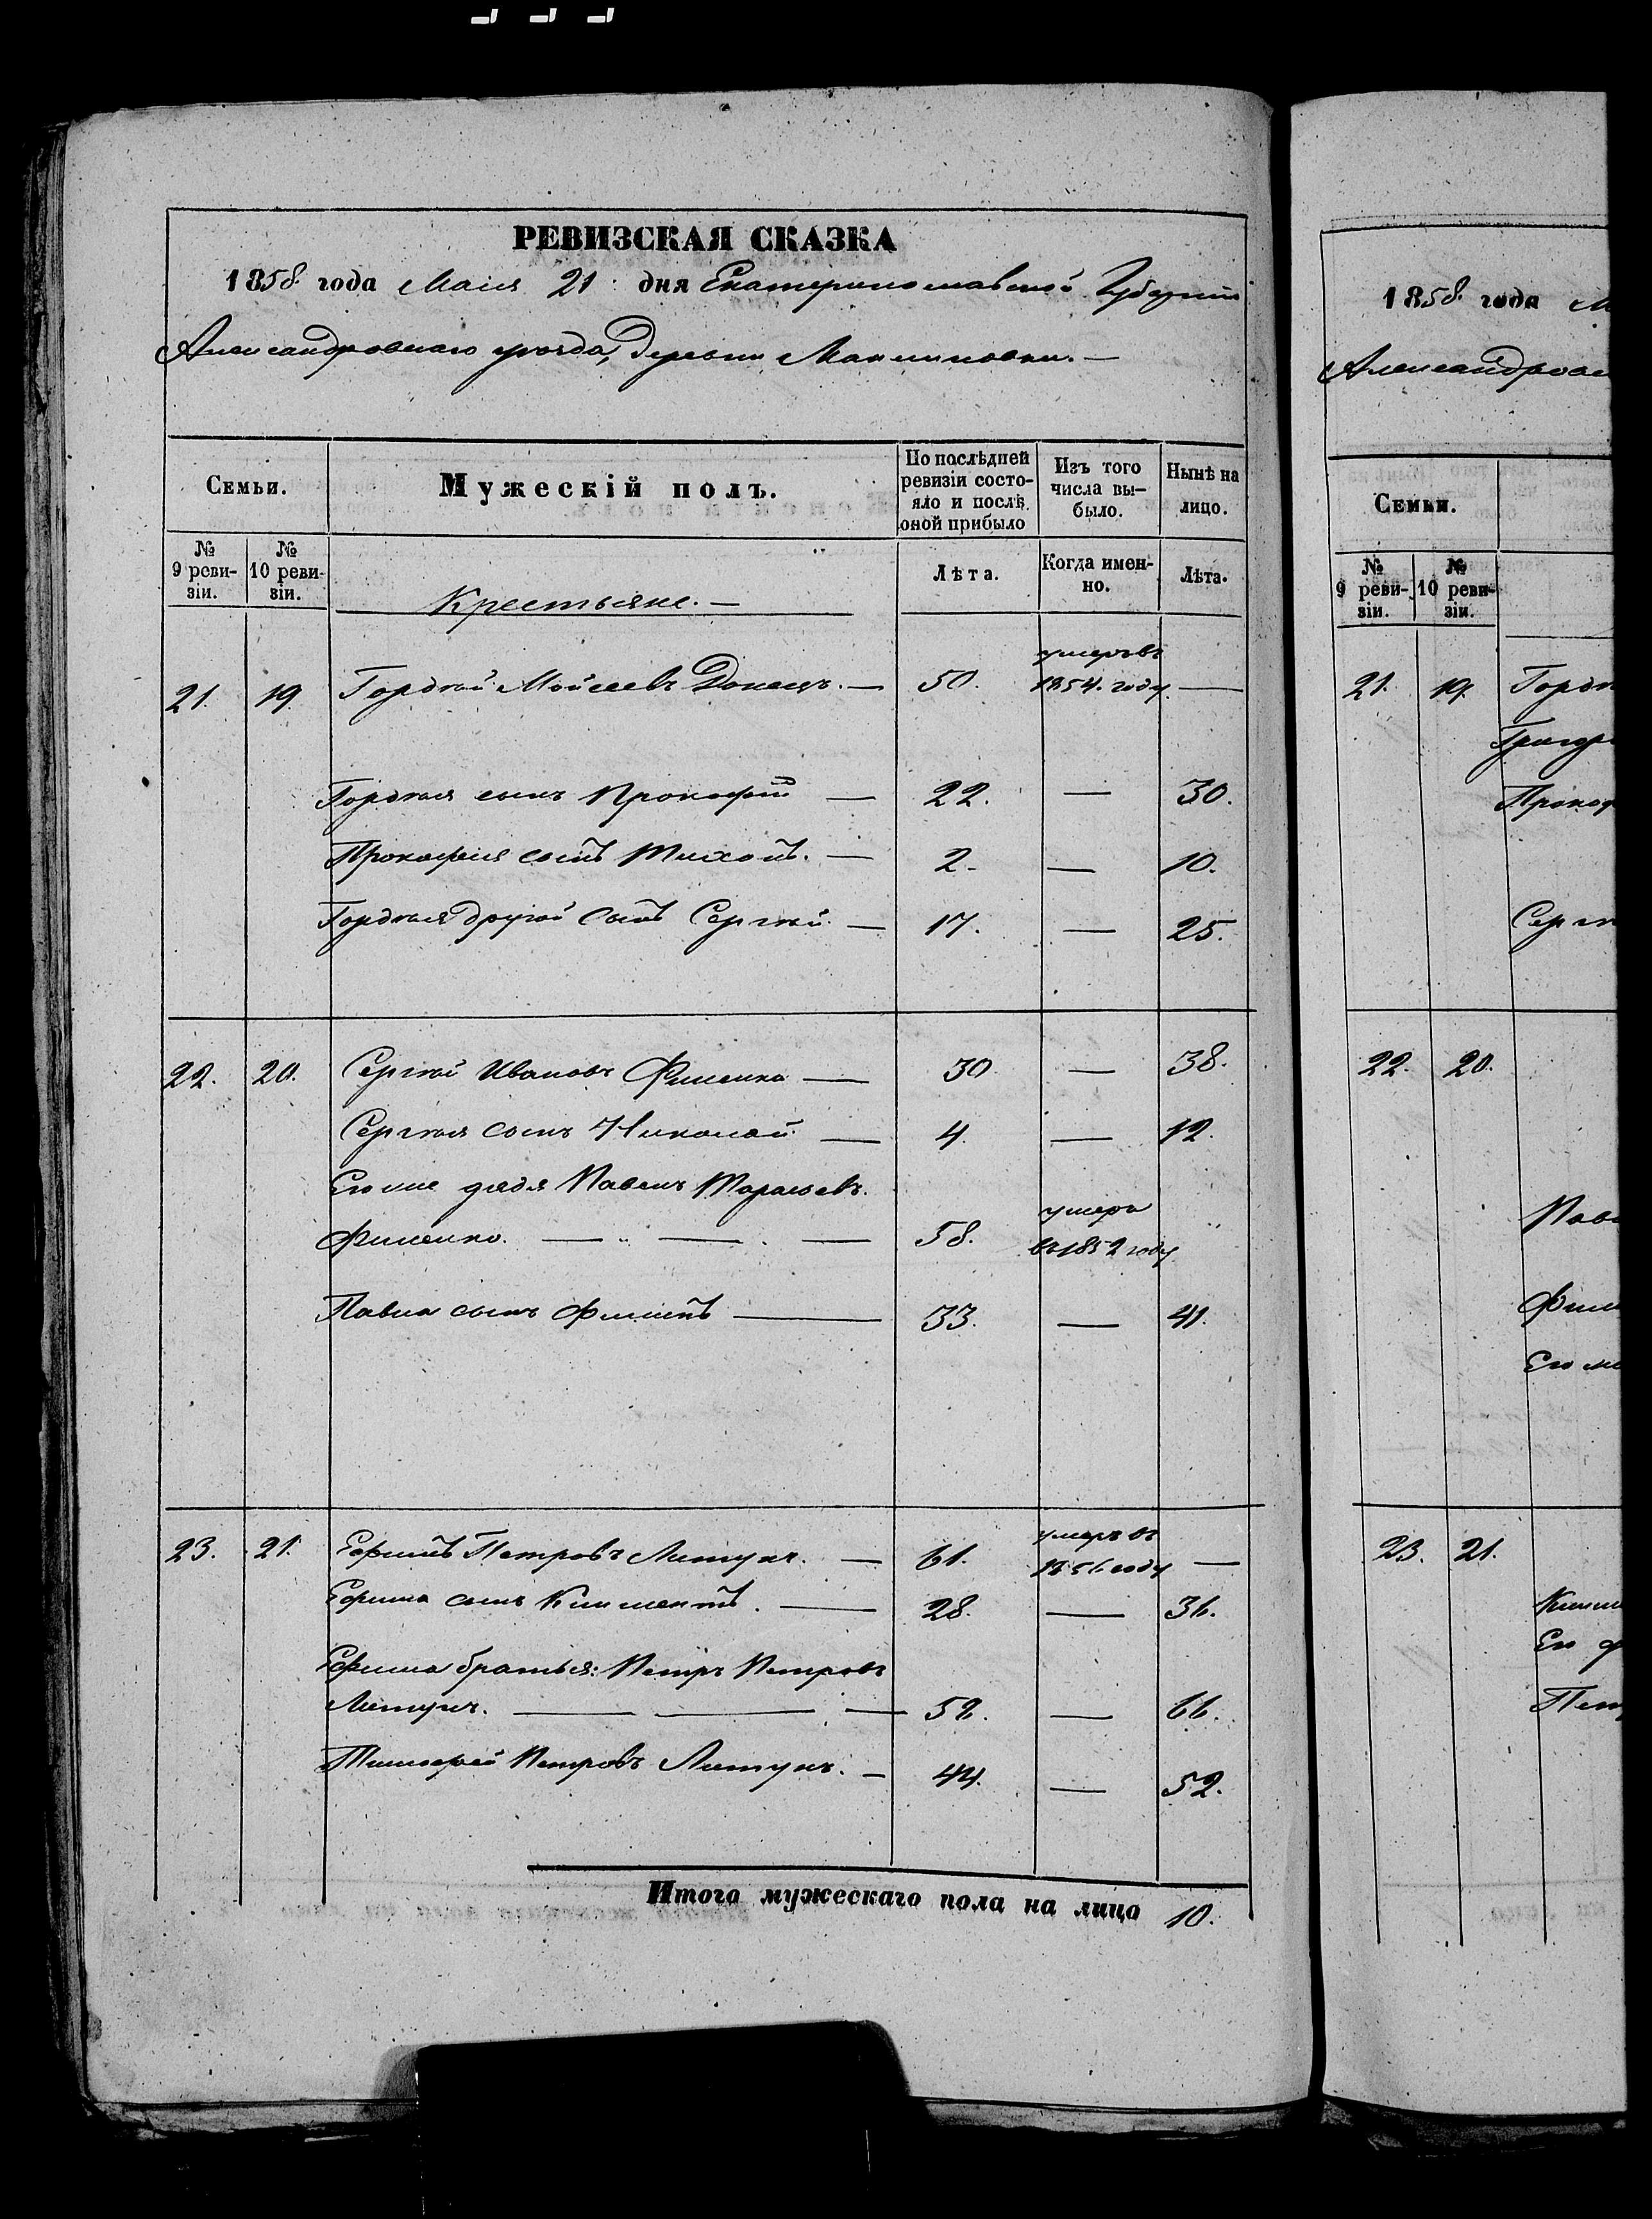 РЕВИЗСКАЯ СКАЗКА
1858 года Маія 21 дня Екатеринославской Губерніи
Александровскаго уѣзда, Деревни
Семьи.
Мужескій полъ.
По послѣдней ревизіи состояло и послѣ оной прибыло
Изъ того числа выбыло.
Нынѣ на лицо.
№ 9 ревизіи.
№ 10 ревизіи.
Крестьяне.—
Лѣта.
Когда именно.
Лѣта.
21. 19. Гордѣй Мойсеевъ Донецъ.— 50. умеръ въ 1854. году —
Гордѣя сынъ Прокофій — 22. — 30.
Прокофія сынъ Тихонъ. — 2. — 10.
Гордѣя другой сынъ Сергѣй — 17. — 25.
22. 20. Сергѣй Ивановъ — 30 — 38.
Сергѣя сынъ Николай — 4. — 12.
Его же дядя Павелъ
— — — 58. умеръ въ 1852 году
Павла сынъ Филипъ — 33. — 41.
23. 21. Ефимъ Петровъ Литунъ. — 61. умеръ въ 1856 году —
Ефима сынъ Климентъ. — 28. — 36.
Ефима братья: Петръ Петровъ
Литунъ. — — — 58. — 66.
Тимофей Петровъ Литунъ. — 44. — 52.
Итого мужескаго пола на лицо 10.
1858 года
Семьи.
№ 9 ревизіи.
№ 10 ревизіи.
21. 19.
22. 20.
23. 21.